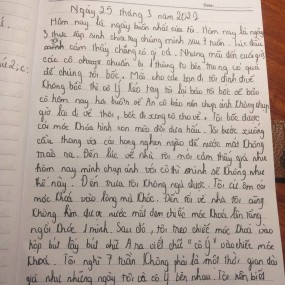 Ngày 25 tháng 3 năm 2022
Hôm nay là ngày buồn nhất của tôi. Hôm nay là ngày
3 thực tập sinh chia tay chúng mình sau 7 tuần. Lúc đầu
mình cảm thấy chẳng có gì cả. Nhưng mãi đến cuối giờ
các cô chuẩn bị 1 thùng to bên trong có quà
để chúng tôi bốc. Mà cho các bạn đi
Không bốc thì cô Ý kéo tay tôi lại bảo tôi bốc về bảo
cô hôm nay hơi buồn về An cô bảo nên chụp ảnh Không chụp
giờ lại đi về thôi, bốc đi xong cô cho về. Tôi bốc được
cái móc Khóa hình con mèo đội dưa hấu. Tôi bước xuống
cầu thang với cái họng nghẹn ngào để nước mắt Không
mà Đến lúc về nhà tôi mới cảm thấy giá như
hôm nay mình chụp ảnh với cô thì mình sẽ Không như
thế này. Đến trưa tôi Không ngủ được. Tôi cứ ôm cái
móc Khóa vào lòng mà Khóc. Đến tối về nhà tôi cũng
Không kìm được nước mắt đem chiếc móc Khóa lên tầng
ngồi Khóc 1 mình. Sau đó, tôi treo chiếc móc Khóa vào
hộp bút lấy bút chữ A viết chữ "cô Ý" vào chiếc móc
Khóa. Tôi nghĩ 7 tuần Không phải là một thời gian dài
giá như những ngày tôi và cô Ý bên nhau. Tôi biết